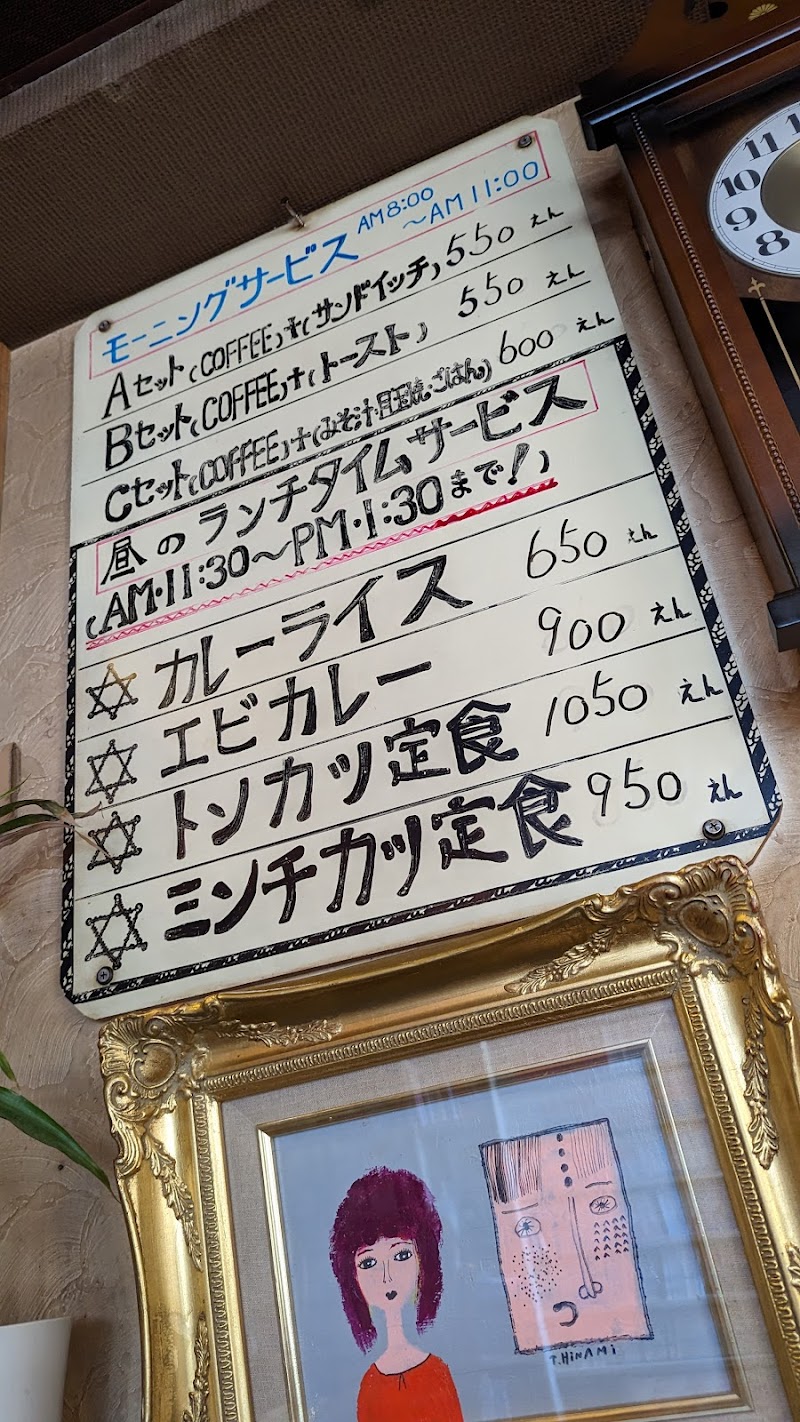 モーニングサービス AM8:00
～AM11:00
Aセット(COFFEE)+(サンドイッチ) 550 えん
Bセット(COFFEE)+(トースト) 550 えん
Cセット(COFFEE)+(みそ汁・目玉焼・ごはん) 600 えん
昼のランチタイムサービス
(AM・11:30～PM・1:30まで!)
カレーライス 650 えん
エビカレー 900 えん
トンカツ定食 1050 えん
ミンチカツ定食 950 えん
11 1
10
9
8
T.HiNAMi